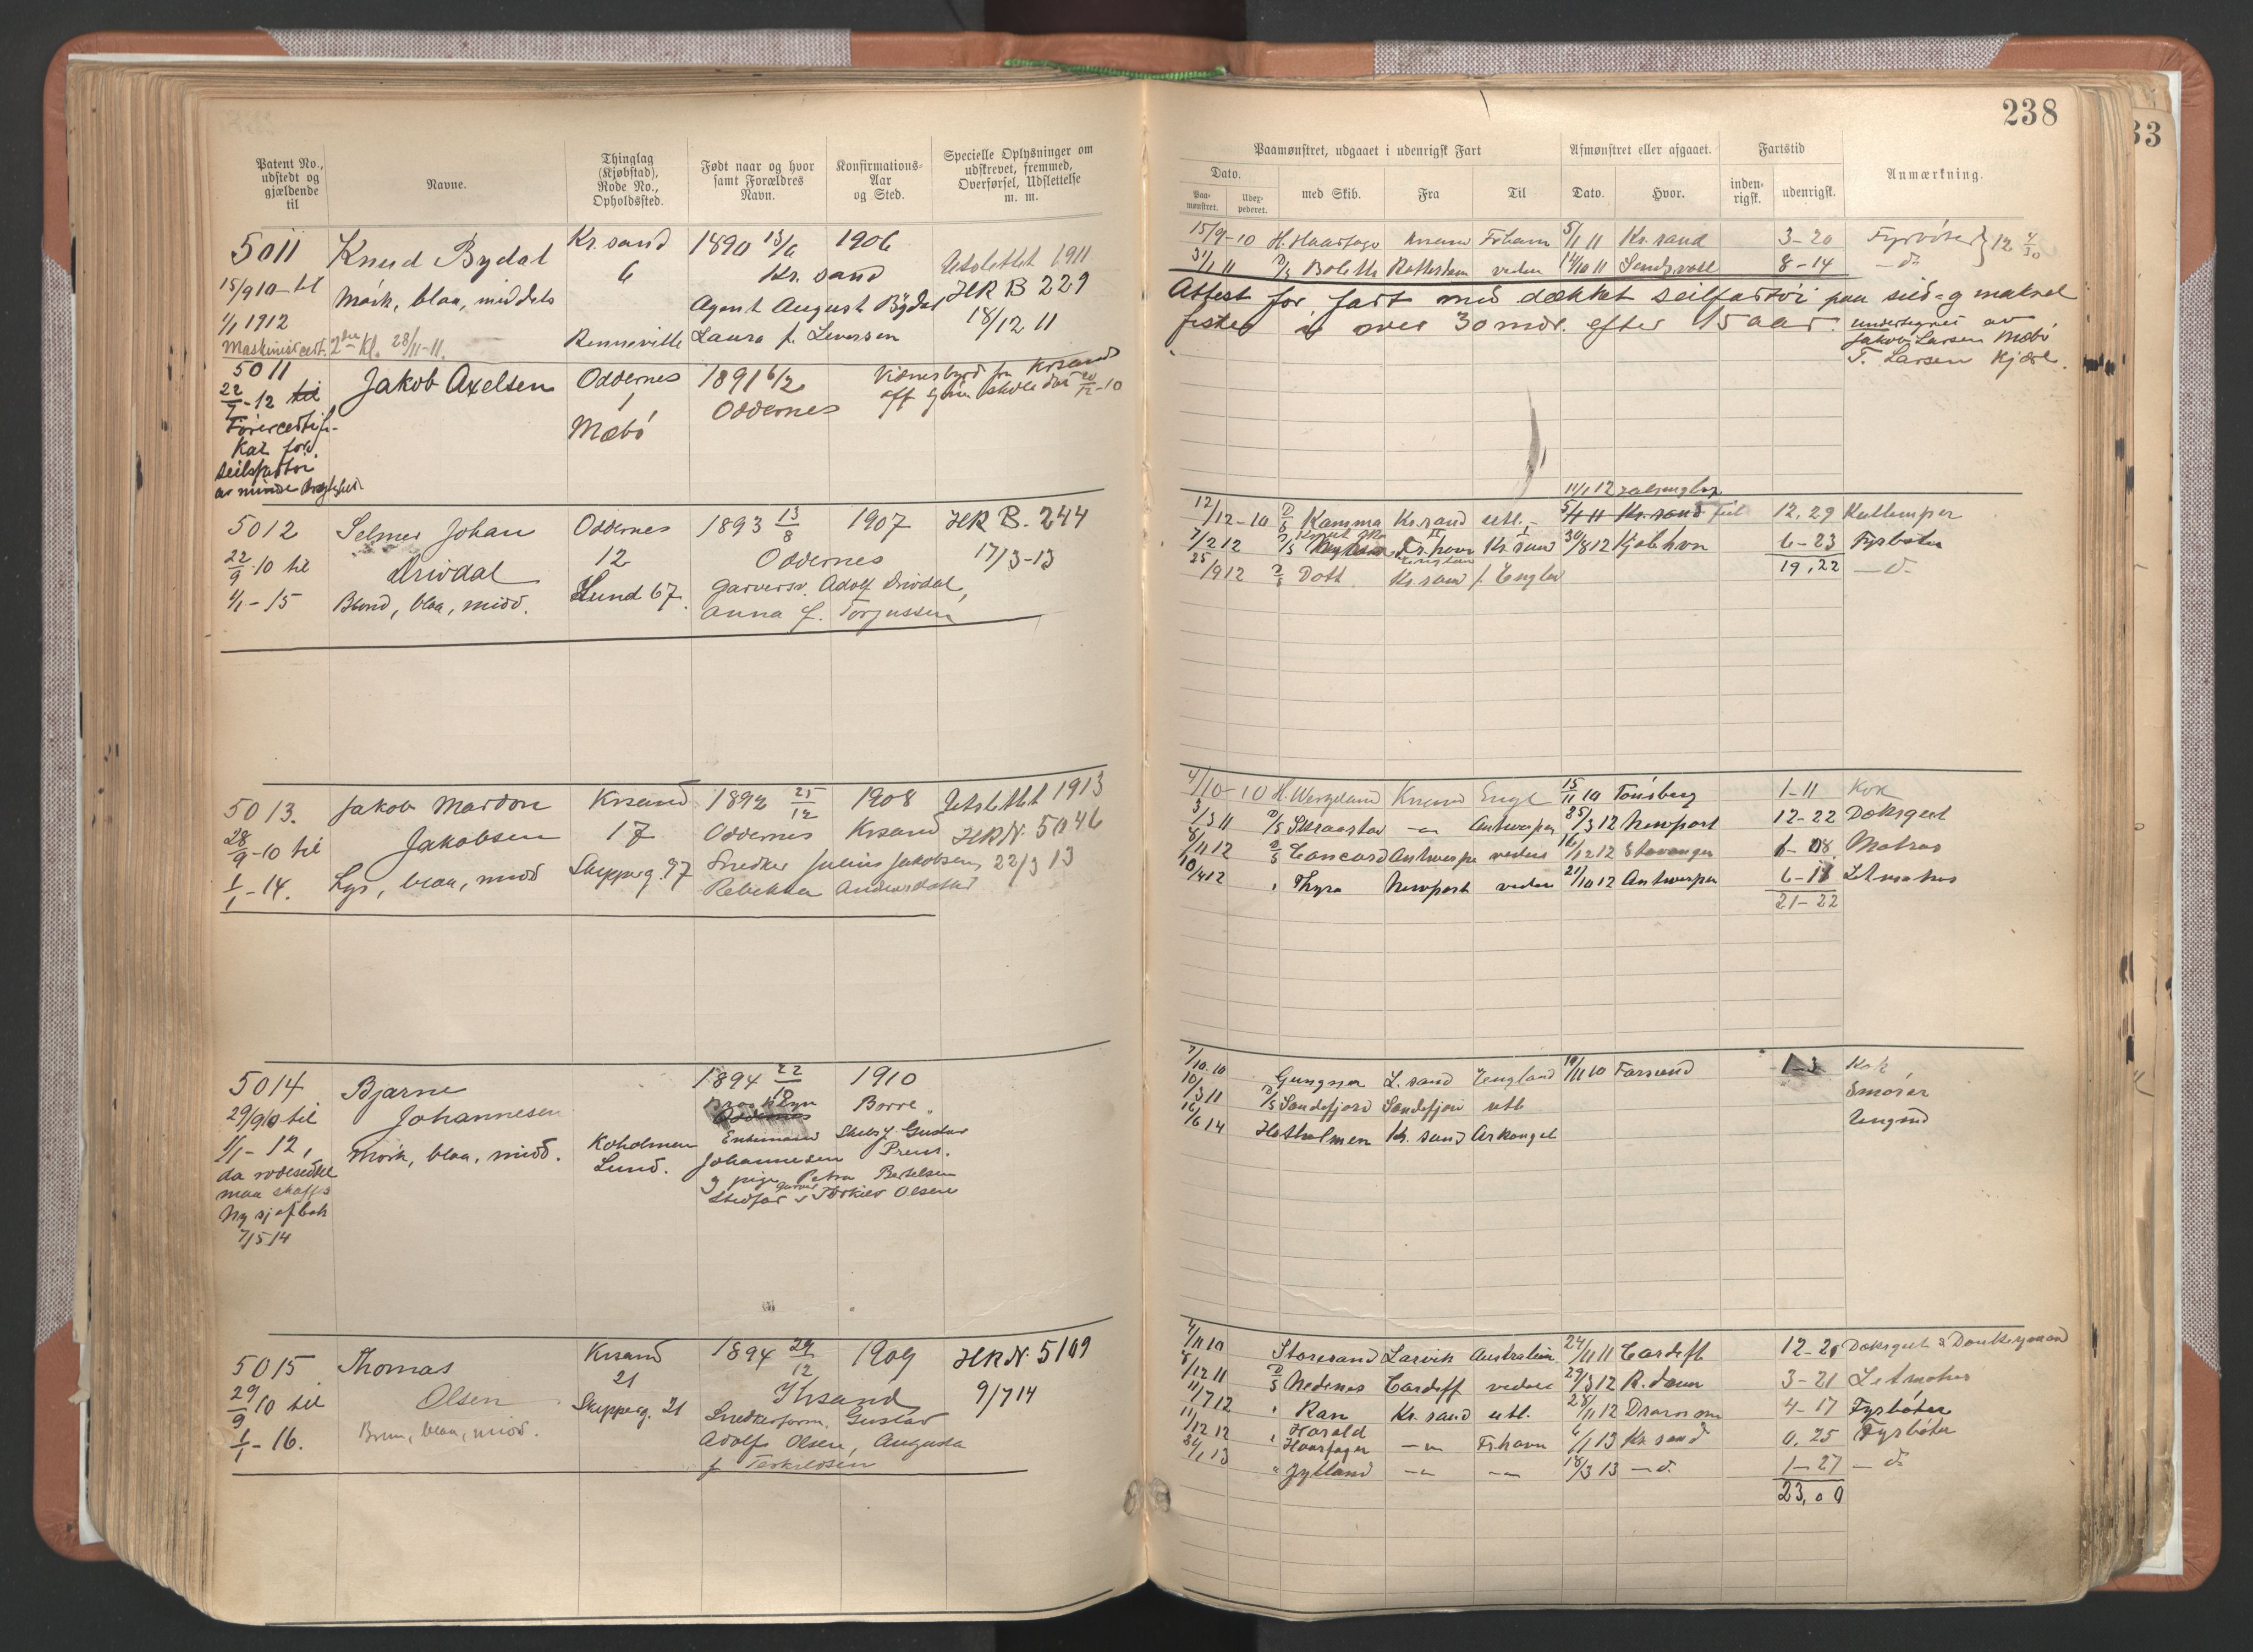 238
33
Patent No., udstedt og gjældende til
Navne.
Thinglag (Kjøbstad), Rode No., Opholdssted.
Født naar og hvor samt Forældres Navn.
Konfirmations-Aar og Sted.
Specielle Oplysninger om udskrevet, fremmed, Overførsel, Udslettelse m. m.
Paamønstret, udgaaet i udenrigsk Fart
Afmønstret eller afgaaet.
Fartstid
Anmærkning.
Dato.
Paa-mønstret.
med Skib.
Fra
Til
Dato.
Hvor.
inden-rigsk.
udenrigsk.
5011 Knud Bydal Kr.sand 1890 13/6 1906
15/9 10 til 6 Kr. sand Utslettet 1911
Mørk, blaa, middels Agent August Bydal HR B 229
1/1 1912 18/12 11
Maskinistcert. 2den Kl. 28/11-11. Renneville Laura f. Leversen
15/9-10 H. Haarfage Krsand Frhavn 5/1 11 Kr.sand 3-20 Fyrbøter
31/1 11 D/S Rotterdam 14/10 11 8-14 - d-
5011 Jakob Axelsen Oddernes 1891 6/2
22/7-12 til 1 Oddernes
Mæbø
Førercertifi-
kat for
seilfartøi
av minde
Attest for fart med dækket seilfartøi paa sild- g makrel
fiske i over 30 mdr. efter 15 aar. undertegnet av
Jakob Larsen Mæbø
T. Larsen Kjære.
5012 Selmer Johan Oddernes 1893 13/8 1907 HR B. 244
22/9-10 til Drivdal 12 Oddernes 17/3-13
1/1-15 Blond, blaa, midd. Lund 67. Garversv. Adolf Drivdal,
Anna f. Torjussen
12/12-10 D/S Kamma Kr.sand utl. 5/1 11 Kr.sand 12.29 Kullemper
7/2 12 Fr.havn Kr.sand 30/8 12 Kjøbhvn 6-23 Fyrbøter
25/9 12 D/S Dott Kr.sand f. Englan 19.22 - d-
5013. Jakob Mardon Krsand 1892 25/12 1908 Utslettet 1913
28/9-10 til Jakobsen 17 Oddernes Krsand HR N. 5046
1/1-14. Lys, blaa, midd Skipperg. 97 Snedker Julius Jakobsen, 22/3 13
Rebekka Andersdatter
4/10-10 H. Wergeland Krsand Engl 15/11 10 Tønsberg 1-11 Kok
3/3 11 D/S -"- Antwerpen 25/3 12 Newport 12-22 Dæksgut
D/S Concord Antwerpe 12 12 Stavanger 08. Matros
10/4 12 " Thyra Newport 21/10 12 Antwerpen Letmatros
21-22
5014 Bjarne 1894 22/12 1910
29/9 10 til Johannesen Borre
1/1-12, Mørk, blaa, midd. Koholmen Enkemand Gustav
Lund. Johannesen
da rodeseddel g pige Petra Bertelsen
maa skaffes Stedfar Torkild Olsen
Ny sjøfbok
7/5 14
7/10.10 Gungner L. sand England 19/11 10 Farsund 1-3 Kok
10/3 11 D/S Sandefjord Sandefjord utl Smører
16/6 14 Hestholmen Kr. sand Arkangel
5015 Thomas Krsand 1894 29/12 1909 HR N. 5109
29/9 10 til Olsen 21 Krsand 9/7 14
1/1-16. Brun, blaa, midd. Skipperg. 21 Snedkerform. Gustav
Adolf Olsen, Augusta
f Terkildsen
4/11 10 Storesand Larvik Australien 24/11 11 Cardiff Dæksgut & Donkeymand
8/12 11 D/S Nedenes Cardiff 29/3 12 R.dam 3-21 Letmatros
11/7 12 " Ran Kr. sand utl. 28/11 12 Drammen 4-17 Fyrbøter
11/12 12 " Harald Haarfager -"- Frhavn 6/1 13 Kr. sand 0.25 Fyrbøter
24/1 13 " Jylland -"- -"- 18/3 13 - d- 1-27 - d-
23.00